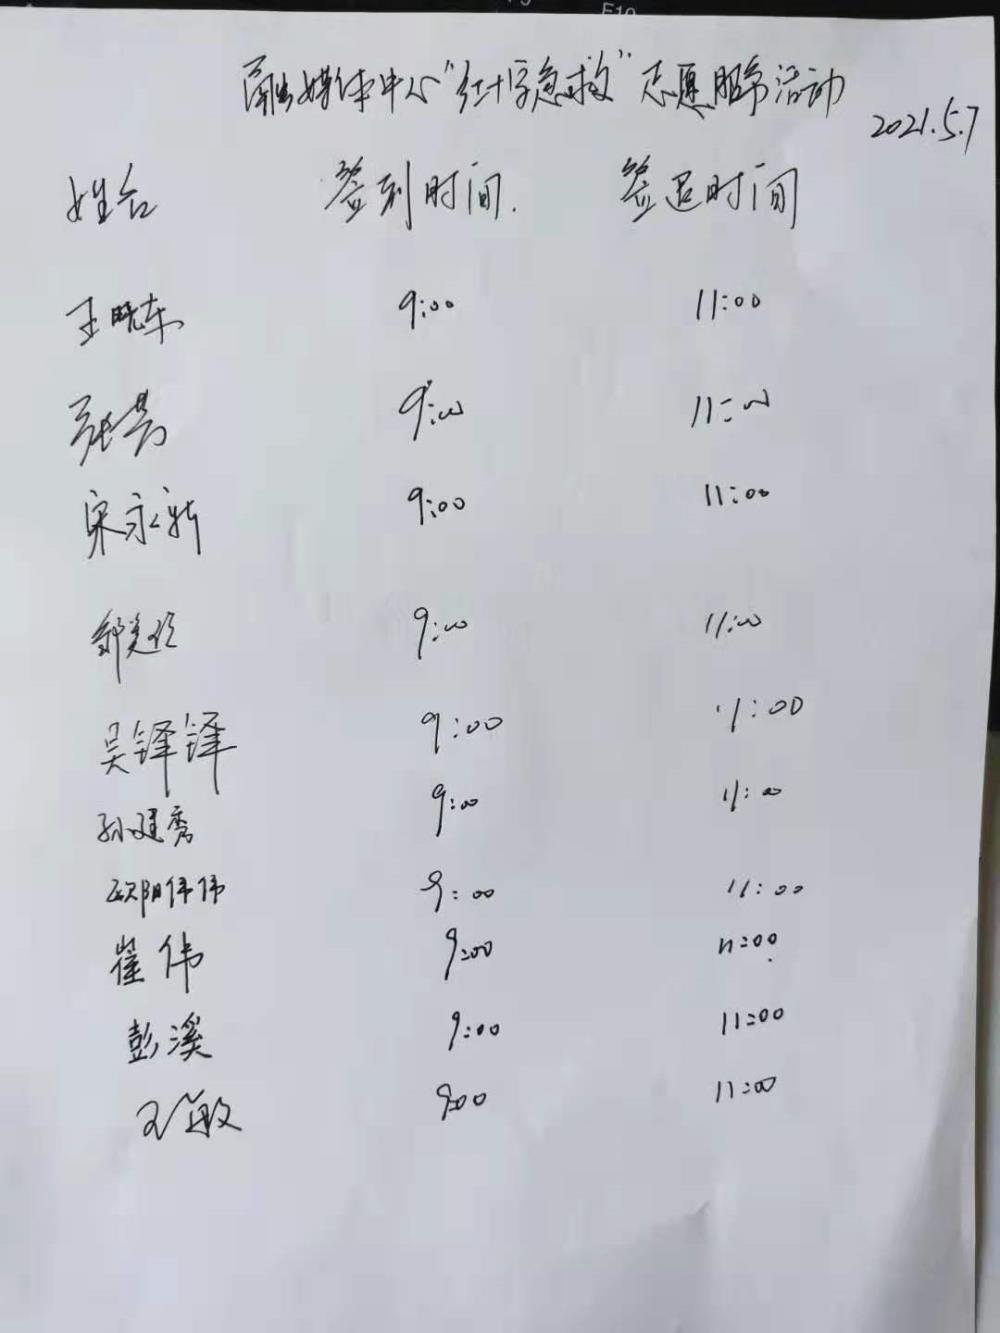 融媒体中心"红十字急救"志愿服务活动
2021.5.7
姓名 签到时间. 签退时间
王晓东 9:00 11:00
张 9:00 11:00
宋永新 9:00 11:00
9:00 11:00
吴铎铎 9:00 11:00
孙建秀 9:00 11:00
欧阳伟伟 9:00 11:00
崔伟 9:00 11:00
彭溪 9:00 11:00
王敏 9:00 11:00